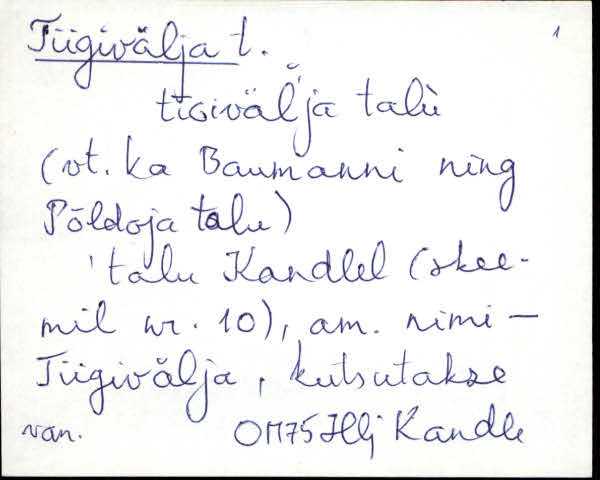 Tiigivälja t. 1
tiGivälja talù
(vt. ka Baumanni ning
Põldoja talu)
'talu Kandlel (skee-
mil nr. 10), am. nimi –
Tiigivälja, kutsutakse
van. Kandle